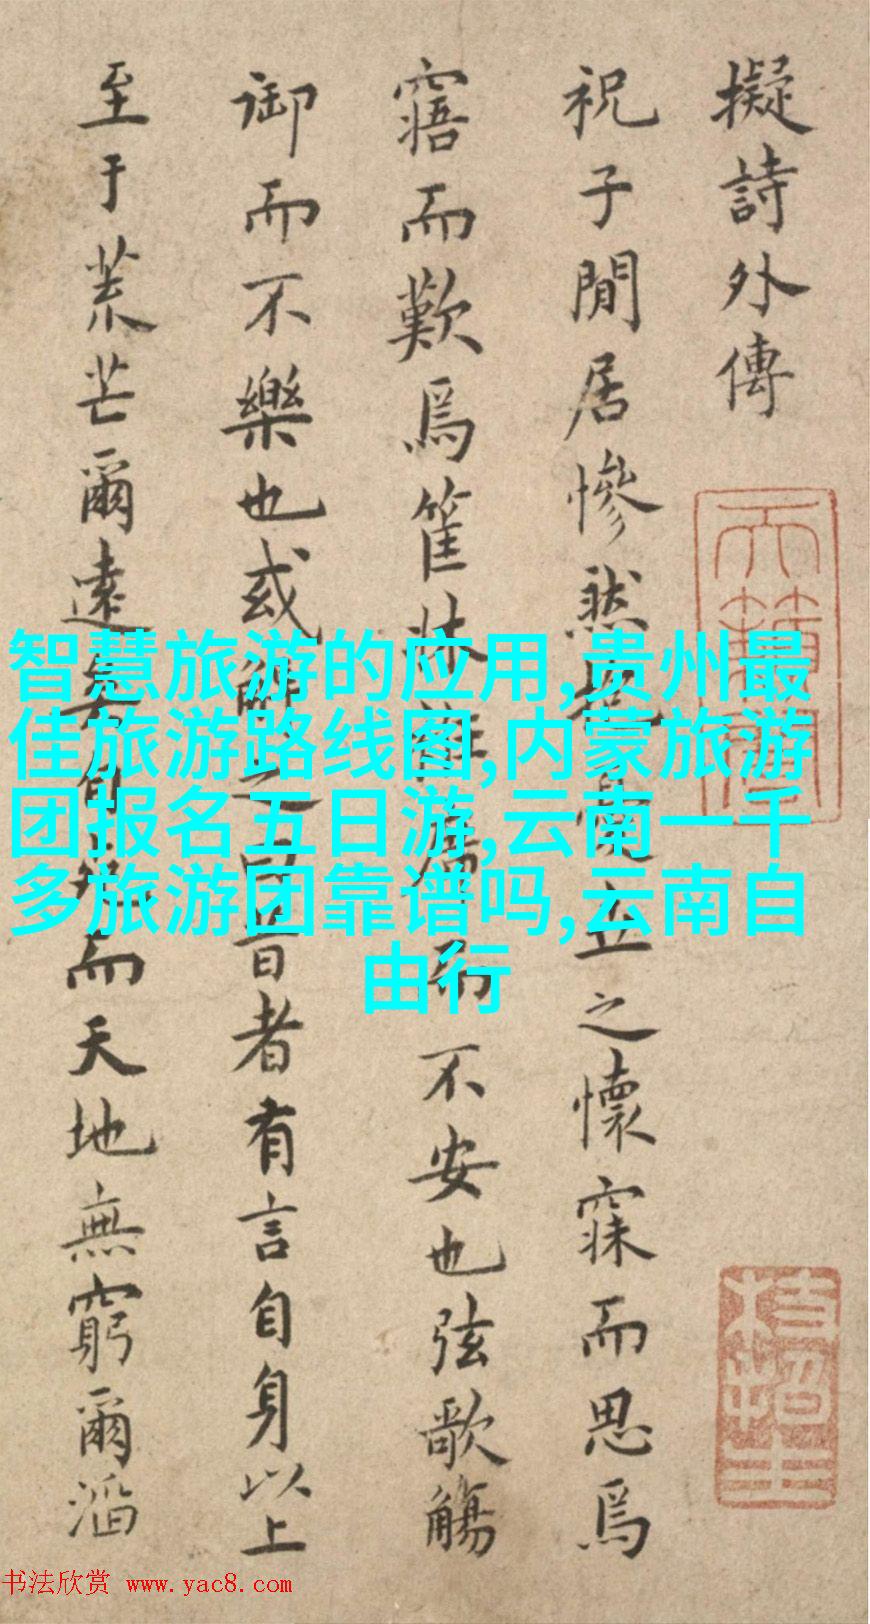 擬詩外傳
祝子閒居慘然
立之懷寐而思爲
寤而歎爲筐牀
不安也弦歌觴
御而不樂也或解之曰昔者有言自身以上
至于荒芒爾遠矣自
而天地無窮爾滔
智慧旅游的应用,贵州最
佳旅游路线图,内蒙旅游
团报名五日游,云南一千
多旅游团靠谱吗,云南自
由行
书法欣赏 www.yac8.com